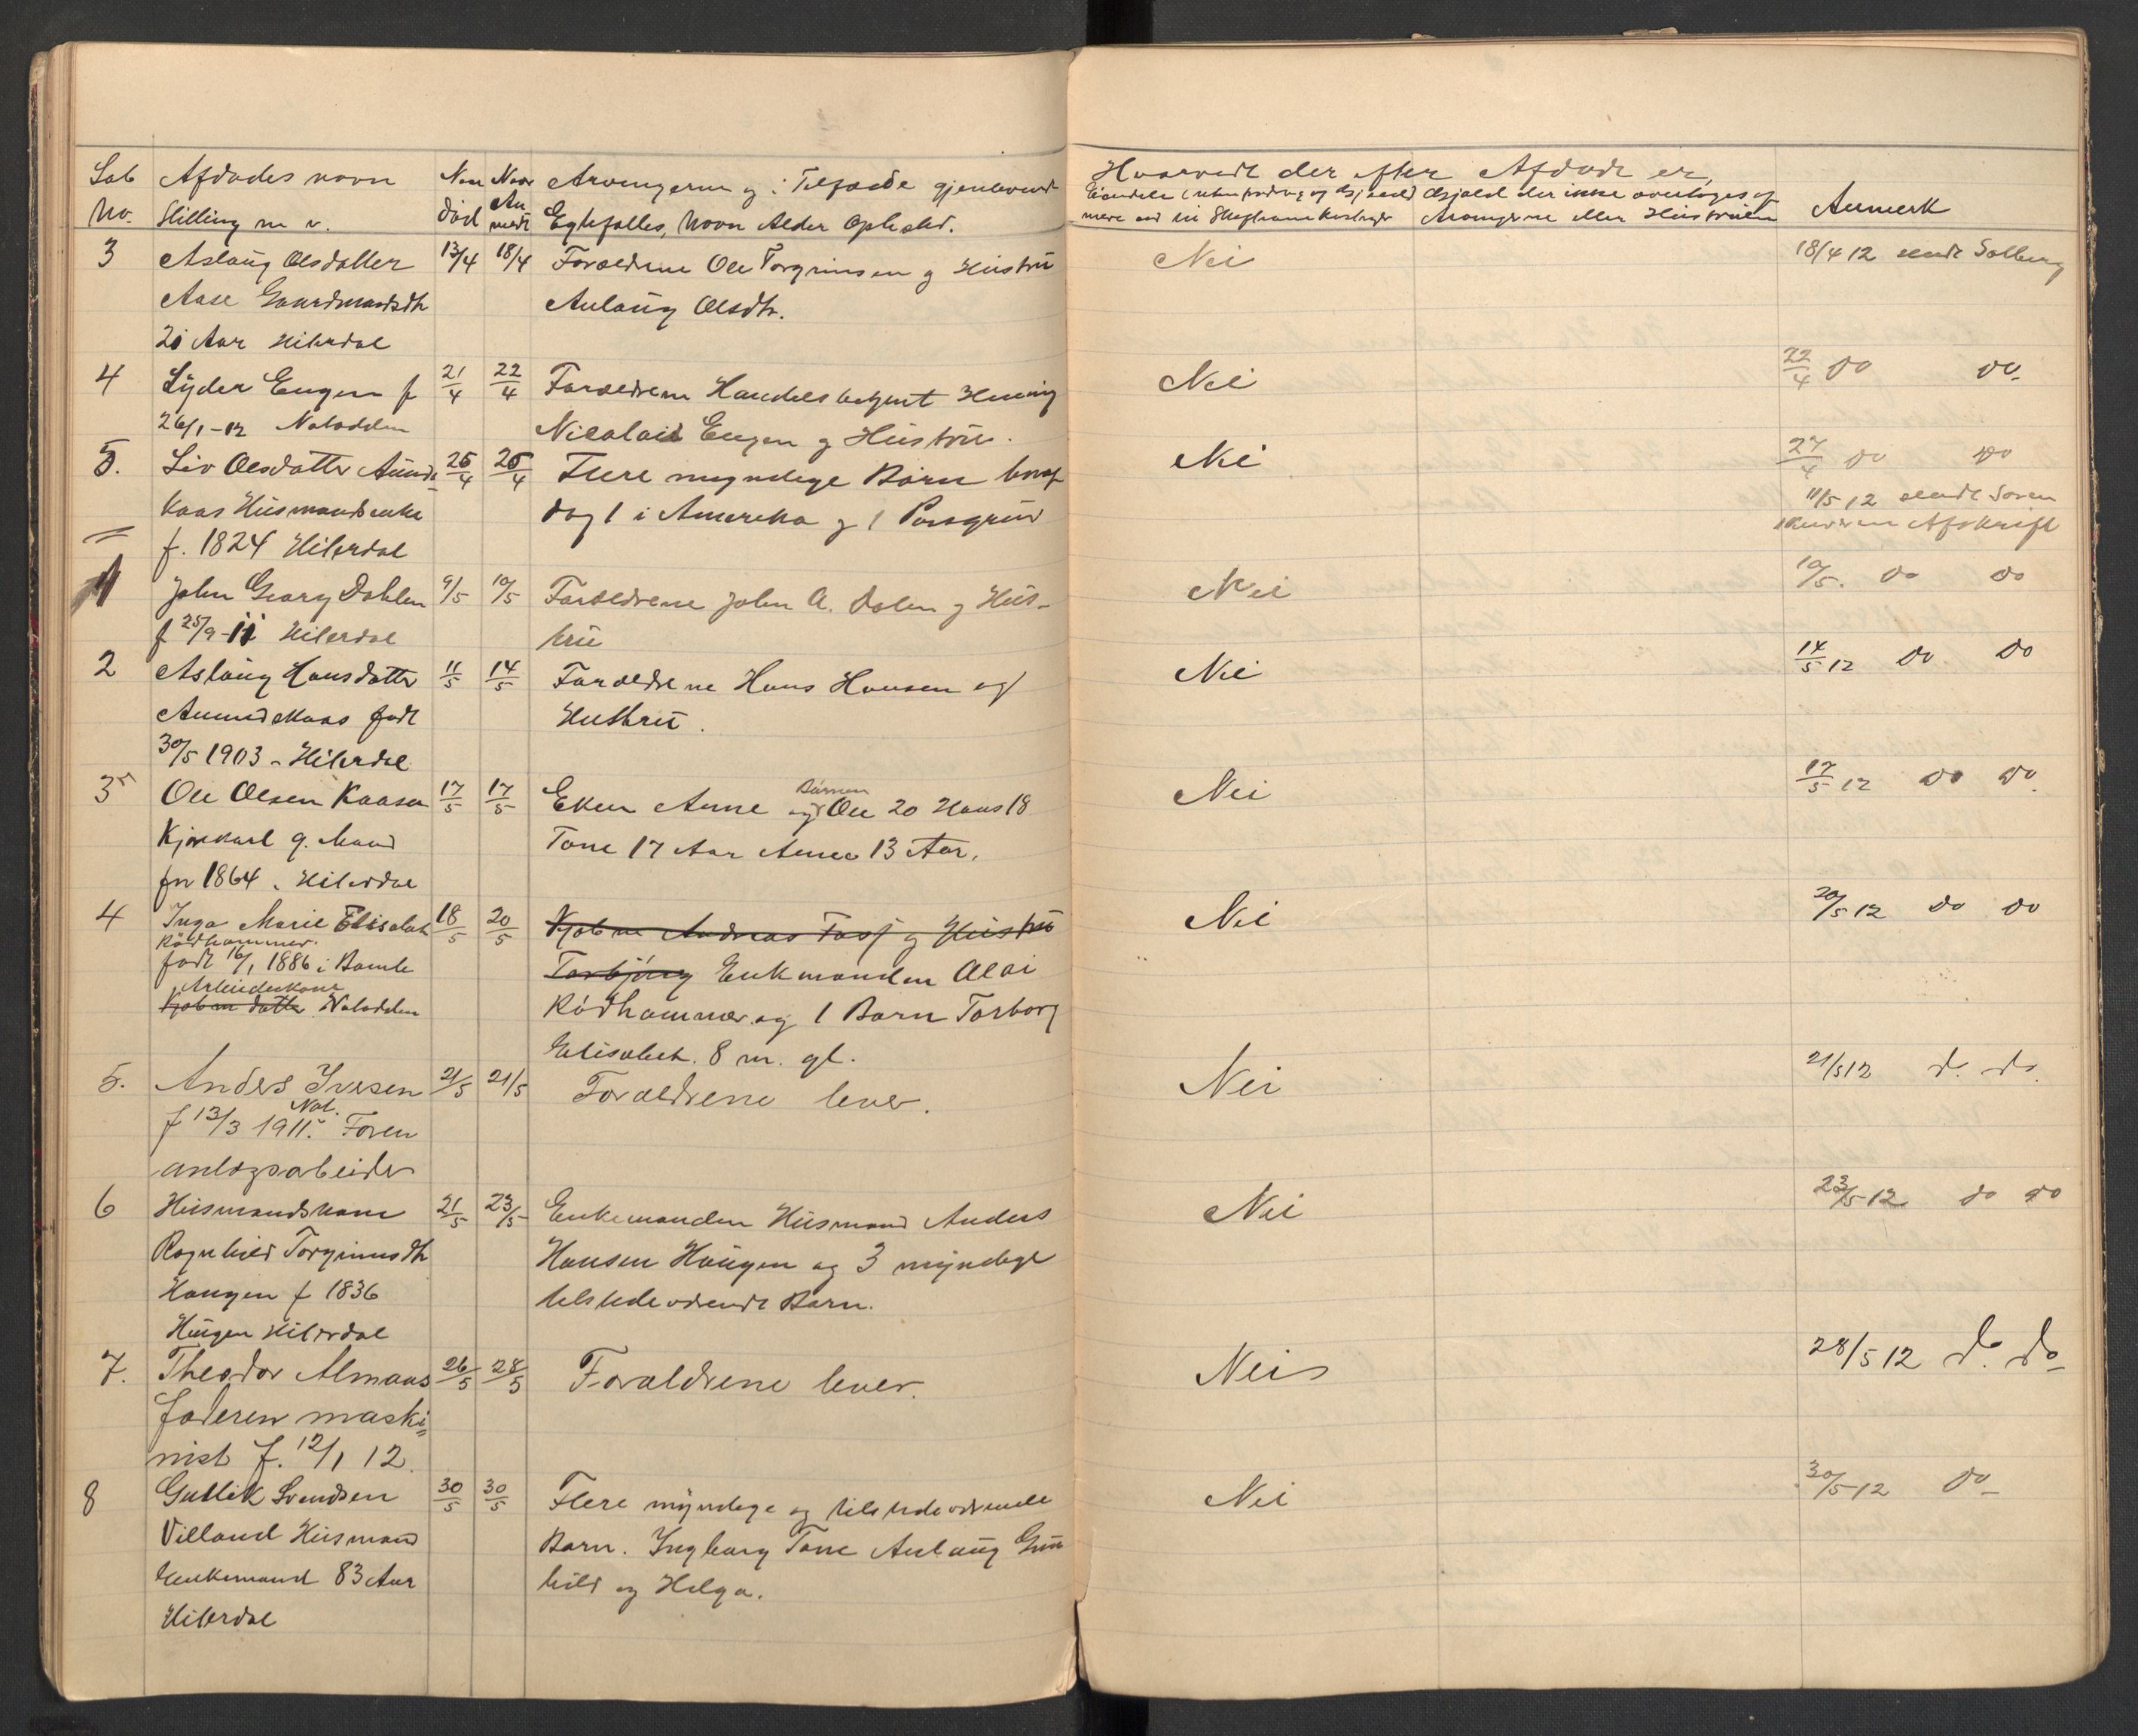 Løb Afdødes navn Naar Naar Arvingerne og i Tilfælde gjenlevende
No. Stilling m v. død Anmeldt Egtefælles, Navn Alder Ophold.
Hvorvidt der efter Afdøde er,
Eiendele mere end til Begravelsens Gjæld der ikke overtages af
Arvingerne eller Hustruen Anmerk
3 Aslaug Olsdatter 13/4 18/4 Forældrene Ole Torgrimsen og Hustru Nei 18/4 12 sendt Solberg
Aase Gaardmandsdtr Aslaug Olsdtr.
20 Aar Hiterdal
4 Lyder Eugen f 21/4 22/4 Forældrene Handelsbetjent Hennig Nei 22/4 do do.
26/1-12 Notodden Nicolai Eugen og Hustru.
5. Liv Olsdatter Amunds 25/4 25/4 Flere myndige Børn hvoraf Nei 27/4 do do
kaas Husmandsenke dog 1 i Amerika og 1 Porsgrund 11/5 12 sendt Soren
f. 1824 Hiterdal skriveren Afskrift
1 John Georg Dahlen 9/5 10/5 Forældrene John A. Dalen og Hus- Nei 10/5. do do
f 25/9-11 Hiterdal tru
2 Aslaug Hansdatter 11/5 14/5 Forældrene Hans Hansen og Nei 14/5 12 do do
Amundskaas født Hustru.
30/5 1903 - Hiterdal
3 Ole Olsen Kaasa 17/5 17/5 Eken Anne og Børnene Ole 20 Hans 18 Nei 17/5 12 do do.
Kjørekarl g. Mand Tone 17 Aar Anne 13 Aar.
fn 1864. Hiterdal
4 Inga Marie Elisabet 18/5 20/5 Kjøbm Andreas Tasj og Hustru Nei 20/5 12 do do
Rødhammer.
født 16/1 1886 i Bamle Torbjørg Enkemanden Olai
Arbeiderkone
Kjøbm datter. Notodden Rødhammer og 1 Barn Torborg
Elisabet. 8 m. gl.
5. Anders Iversen 21/5 21/5 Forældrene lever. Nei 21/5 12 d. do.
f 13/3 1911. Not. Foren
anlægsarbeider
6 Husmandskone 21/5 23/5 Enkemanden Husmand Anders Nei 23/5-12 do do
Ragnhild Torgrimsdtr Hansen Haugen og 3 myndige
Haugen f 1836 tilstedeværende Børn.
Haugen Hiterdal
7. Theodor Almaas 26/5 28/5 Forældrene lever. Nei 28/5 12 do. do
faderen maski-
nist f. 12/1 12.
8 Gullik Svendsen 30/5 30/5 Flere myndige og tilstedeværende Nei 30/5-12 do
Villand Husmand Børn. Ingborg Tone Aslaug Gun
Enkemand 83 Aar hild og Helga.
Hiterdal